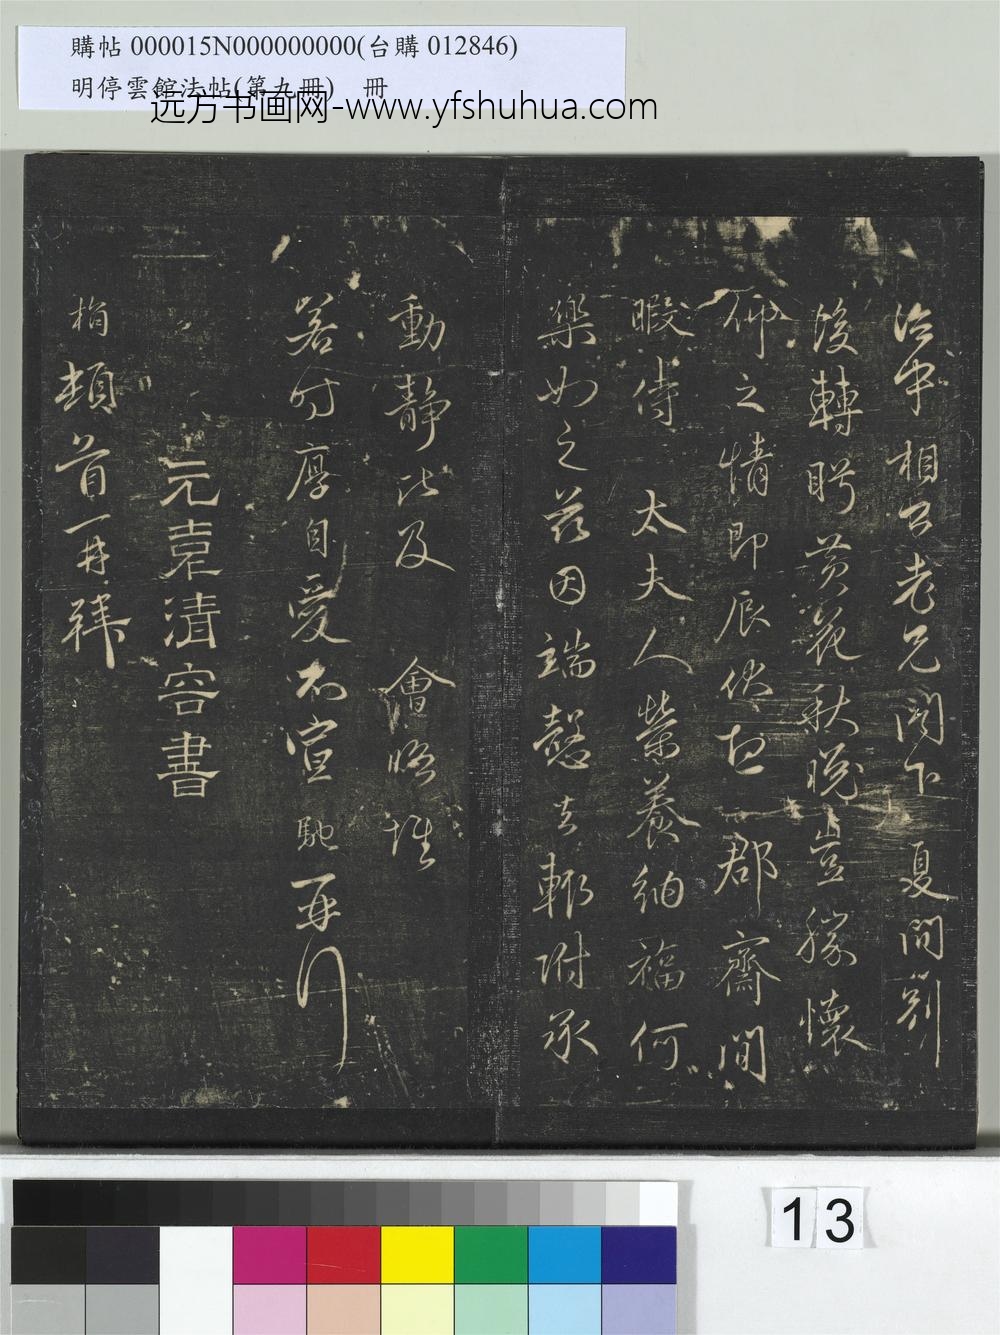 購帖 000015N000000000(台購 012846)
明停雲館法帖(第九冊) 冊
远方书画网-www.yfshuhua.com
治中相公老兄閤下夏間別
後轉盻黃花秋晚豈勝懷
仰之情即辰伏想郡齋間
暇侍 太夫人榮養納福何
樂如之茲因端愨去輒附承
動靜比及 會晤惟
若時厚自愛不宣
元袁清容書
桷頓首再拜
13